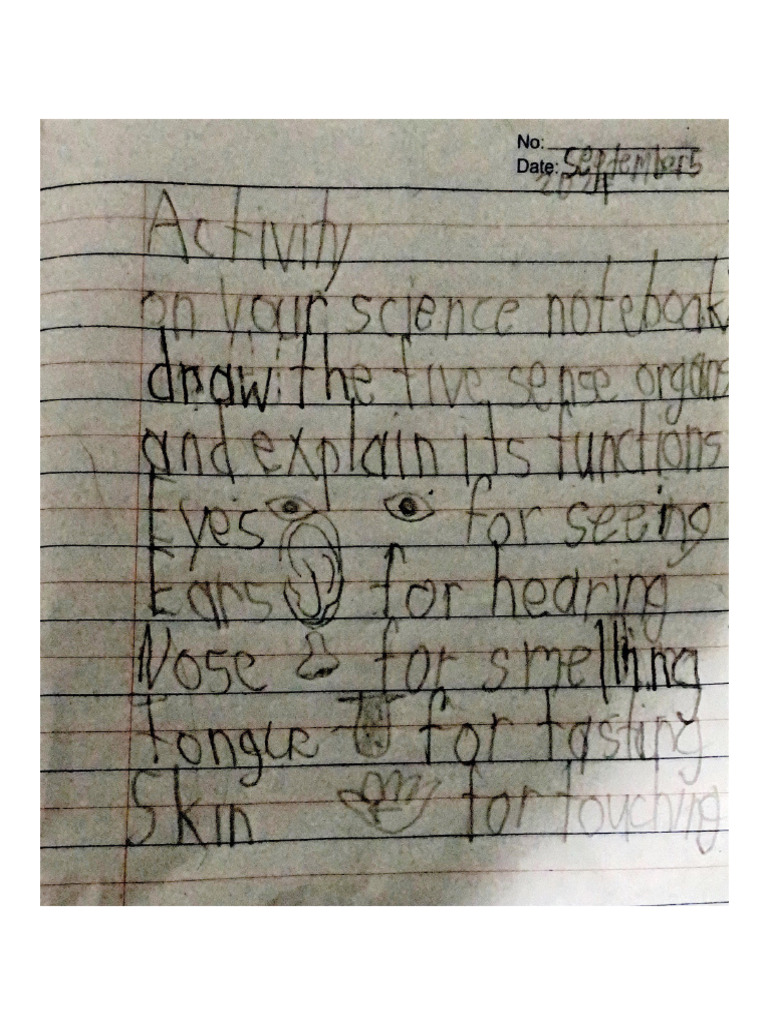 No:
Date: September 5
2024
Activity
on your science notebook
draw the five sense organs
and explain its functions
Eyes for seeing
Ears for hearing
Nose for smelling
Tongue for tasting
Skin for touching